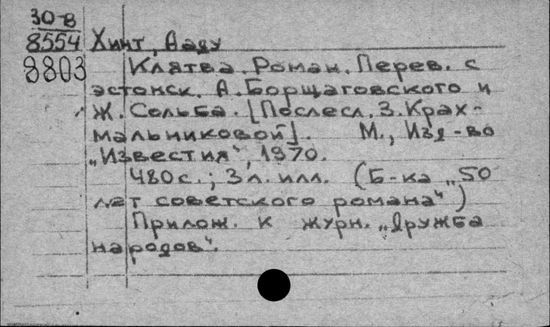 30-8
8554 Хинт, Ааду
8803 Клятва. Роман. Перев. с
эстонск. А. Борщаговского и
Ж. Сельба. [Послесл. З. Крах-
мальниковой]. М., Изд-во
„Известия", 1970.
480 с.; 3 л. илл. (Б-ка „50
лет советского романа")
Прилож. к журн. „Дружба
народов".